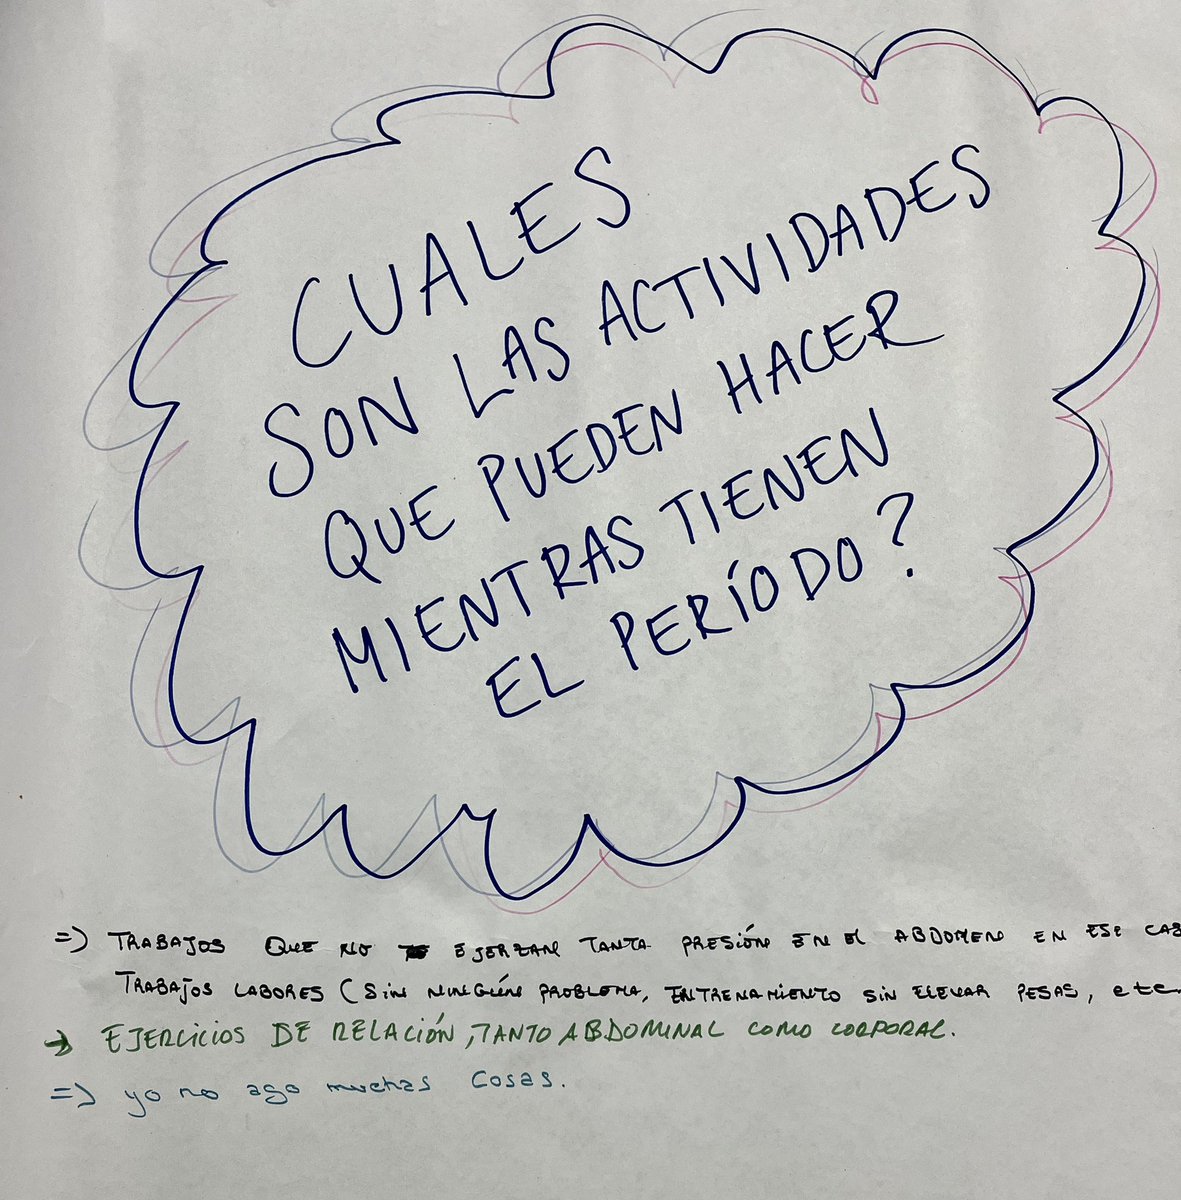 CUALES
SON LAS ACTIVIDADES
QUE PUEDEN HACER
MIENTRAS TIENEN
EL PERÍODO?
=> TRABAJOS QUE NO EJERZAN TANTA PRESIÓN EN EL ABDOMEN EN ESE
TRABAJOS LABORES (SIN NINGÚN PROBLEMA, ENTRENAMIENTO SIN ELEVAR PESAS, etc
→ EJERCICIOS DE RELACIÓN, TANTO ABDOMINAL COMO CORPORAL.
=> yo no ago muchas cosas.